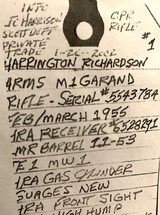 INFO
JC HARRISON
SCOTT DUFF
PRIVATE
TRADE 1-26-2002
CPR
RIFLE
#
1
HARRINGTON RICHARDSON
ARMS M1GARAND
RIFLE - SERIAL # 5543784
FEB/MARCH 1955
HRA RECEIVER 6528291
MR BARREL 11-53
E1 MW1
HRA GAS CYLINDER
GUAGES NEW
HRA FRONT SIGHT
HIGH HUMP